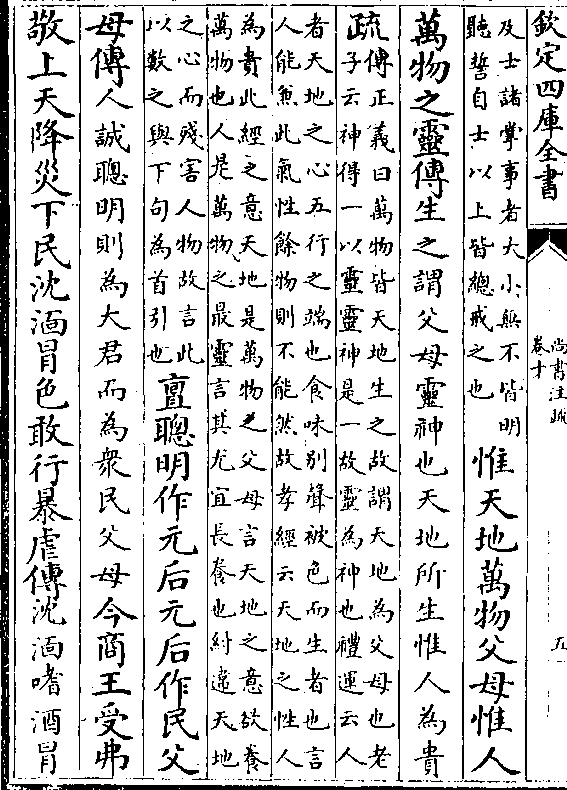 欽定四庫全書
尚書注疏
卷十
五
及士諸掌事者大小無不皆明
聽誓自士以上皆總戒之也
惟天地萬物父母惟人
萬物之靈傳生之謂父母靈神也天地所生惟人為貴
疏
傳正義曰萬物皆天地生之故謂天地為父母也老
子云神得一以靈靈神是一故靈為神也禮運云人
者天地之心五行之端也食味別聲被色而生者也言
人能兼此氣性餘物則不能然故孝經云天地之性人
為貴此經之意天地是萬物之父母言天地之意欲養
萬物也人是萬物之最靈言其尤宜長養也紂違天地
之心而殘害人物故言此
以數之與下句為首引也
亶聰明作元后元后作民父
母傳人誠聰明則為大君而為衆民父母今商王受弗
敬上天降災下民沈湎冒色敢行暴虐傳沈湎嗜酒冒